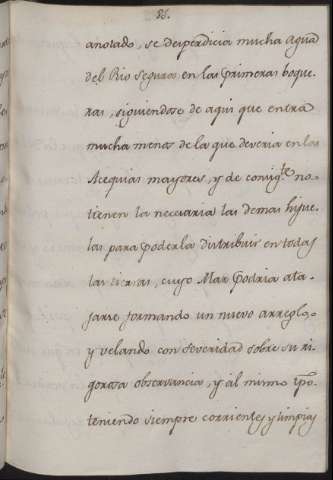 86.
anotado, se desperdicia mucha agua
del Rio Segura en las primeras boque
ras, siguiendose de aqui que entra
mucha menos de la que deveria en las
Acequias mayores, y de consigte. no
tienen la necesaria las demas hijue
las para poderla distribuir en todas
las tierras, cuyo Mal podria ata
jarse formando un nuevo arreglo,
y velando con severidad sobre su ri
gorosa observancia, y al mismo tpo.
teniendo siempre corrientes y limpias